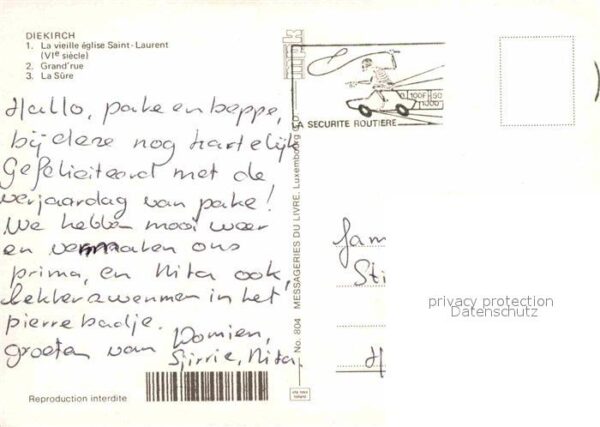 DIEKIRCH
1. La vieille église Saint-Laurent
(VIe siècle)
2. Grand'rue
3. La Sûre
Hallo, pake en beppe,
bij deze nog hartelijk
gefeliciteerd met de
verjaardag van pake!
We hebben mooi weer
en vermaken ons
prima, en Nita ook,
lekker zwemmen in het
pierrebadje.
groeten van Womien,
Sjirrie, Nita.
Reproduction interdite
No. 804 MESSAGERIES DU LIVRE, Luxembourg
mpk
100F 50
LA SECURITE ROUTIERE
Fam
Sti
H
privacy protection
Datenschutz